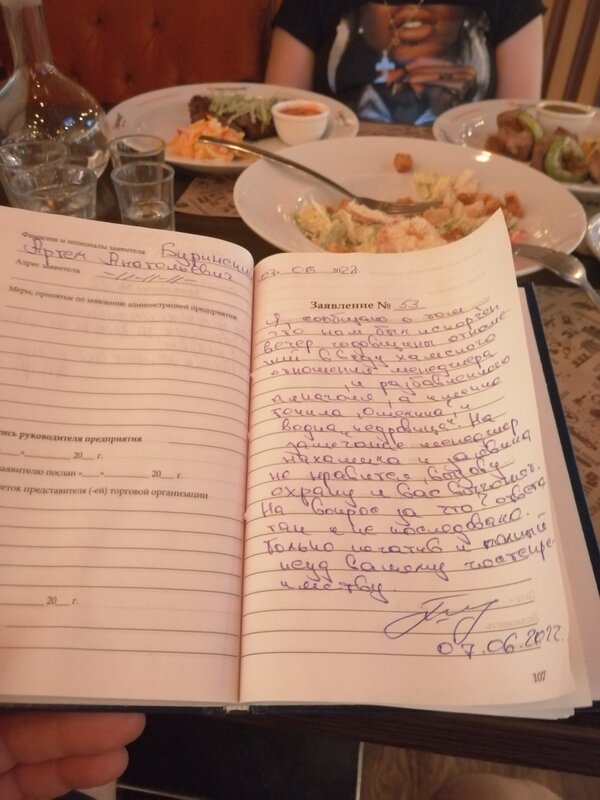 Фамилия и инициалы заявителя Буринский
Артем Анатольевич
Адрес заявителя —//—//—//—
Меры, принятые по заявлению администрацией предприятия:
пись руководителя предприятия
«___»___ 20___ г.
аявителю послан «___»___ 20___ г.
меток представителя (-ей) торговой организации
20___ г.
07. 06. 2022
Заявление № 53
Я, сообщаю о том
что нам был испорчен
вечер годовщины отноше-
ний ввиду хамского
отношения менеджера
, и разбавленного
алкоголя, а именно
водка На
замечание менеджер
нахамила и заявила
не нравится, вызову
охрану и вас выгонят.
На вопрос за что? ответа
так и не последовало.
Только негатив и полный
неуд вашему гостепри-
имству.
07.06.2022.
107